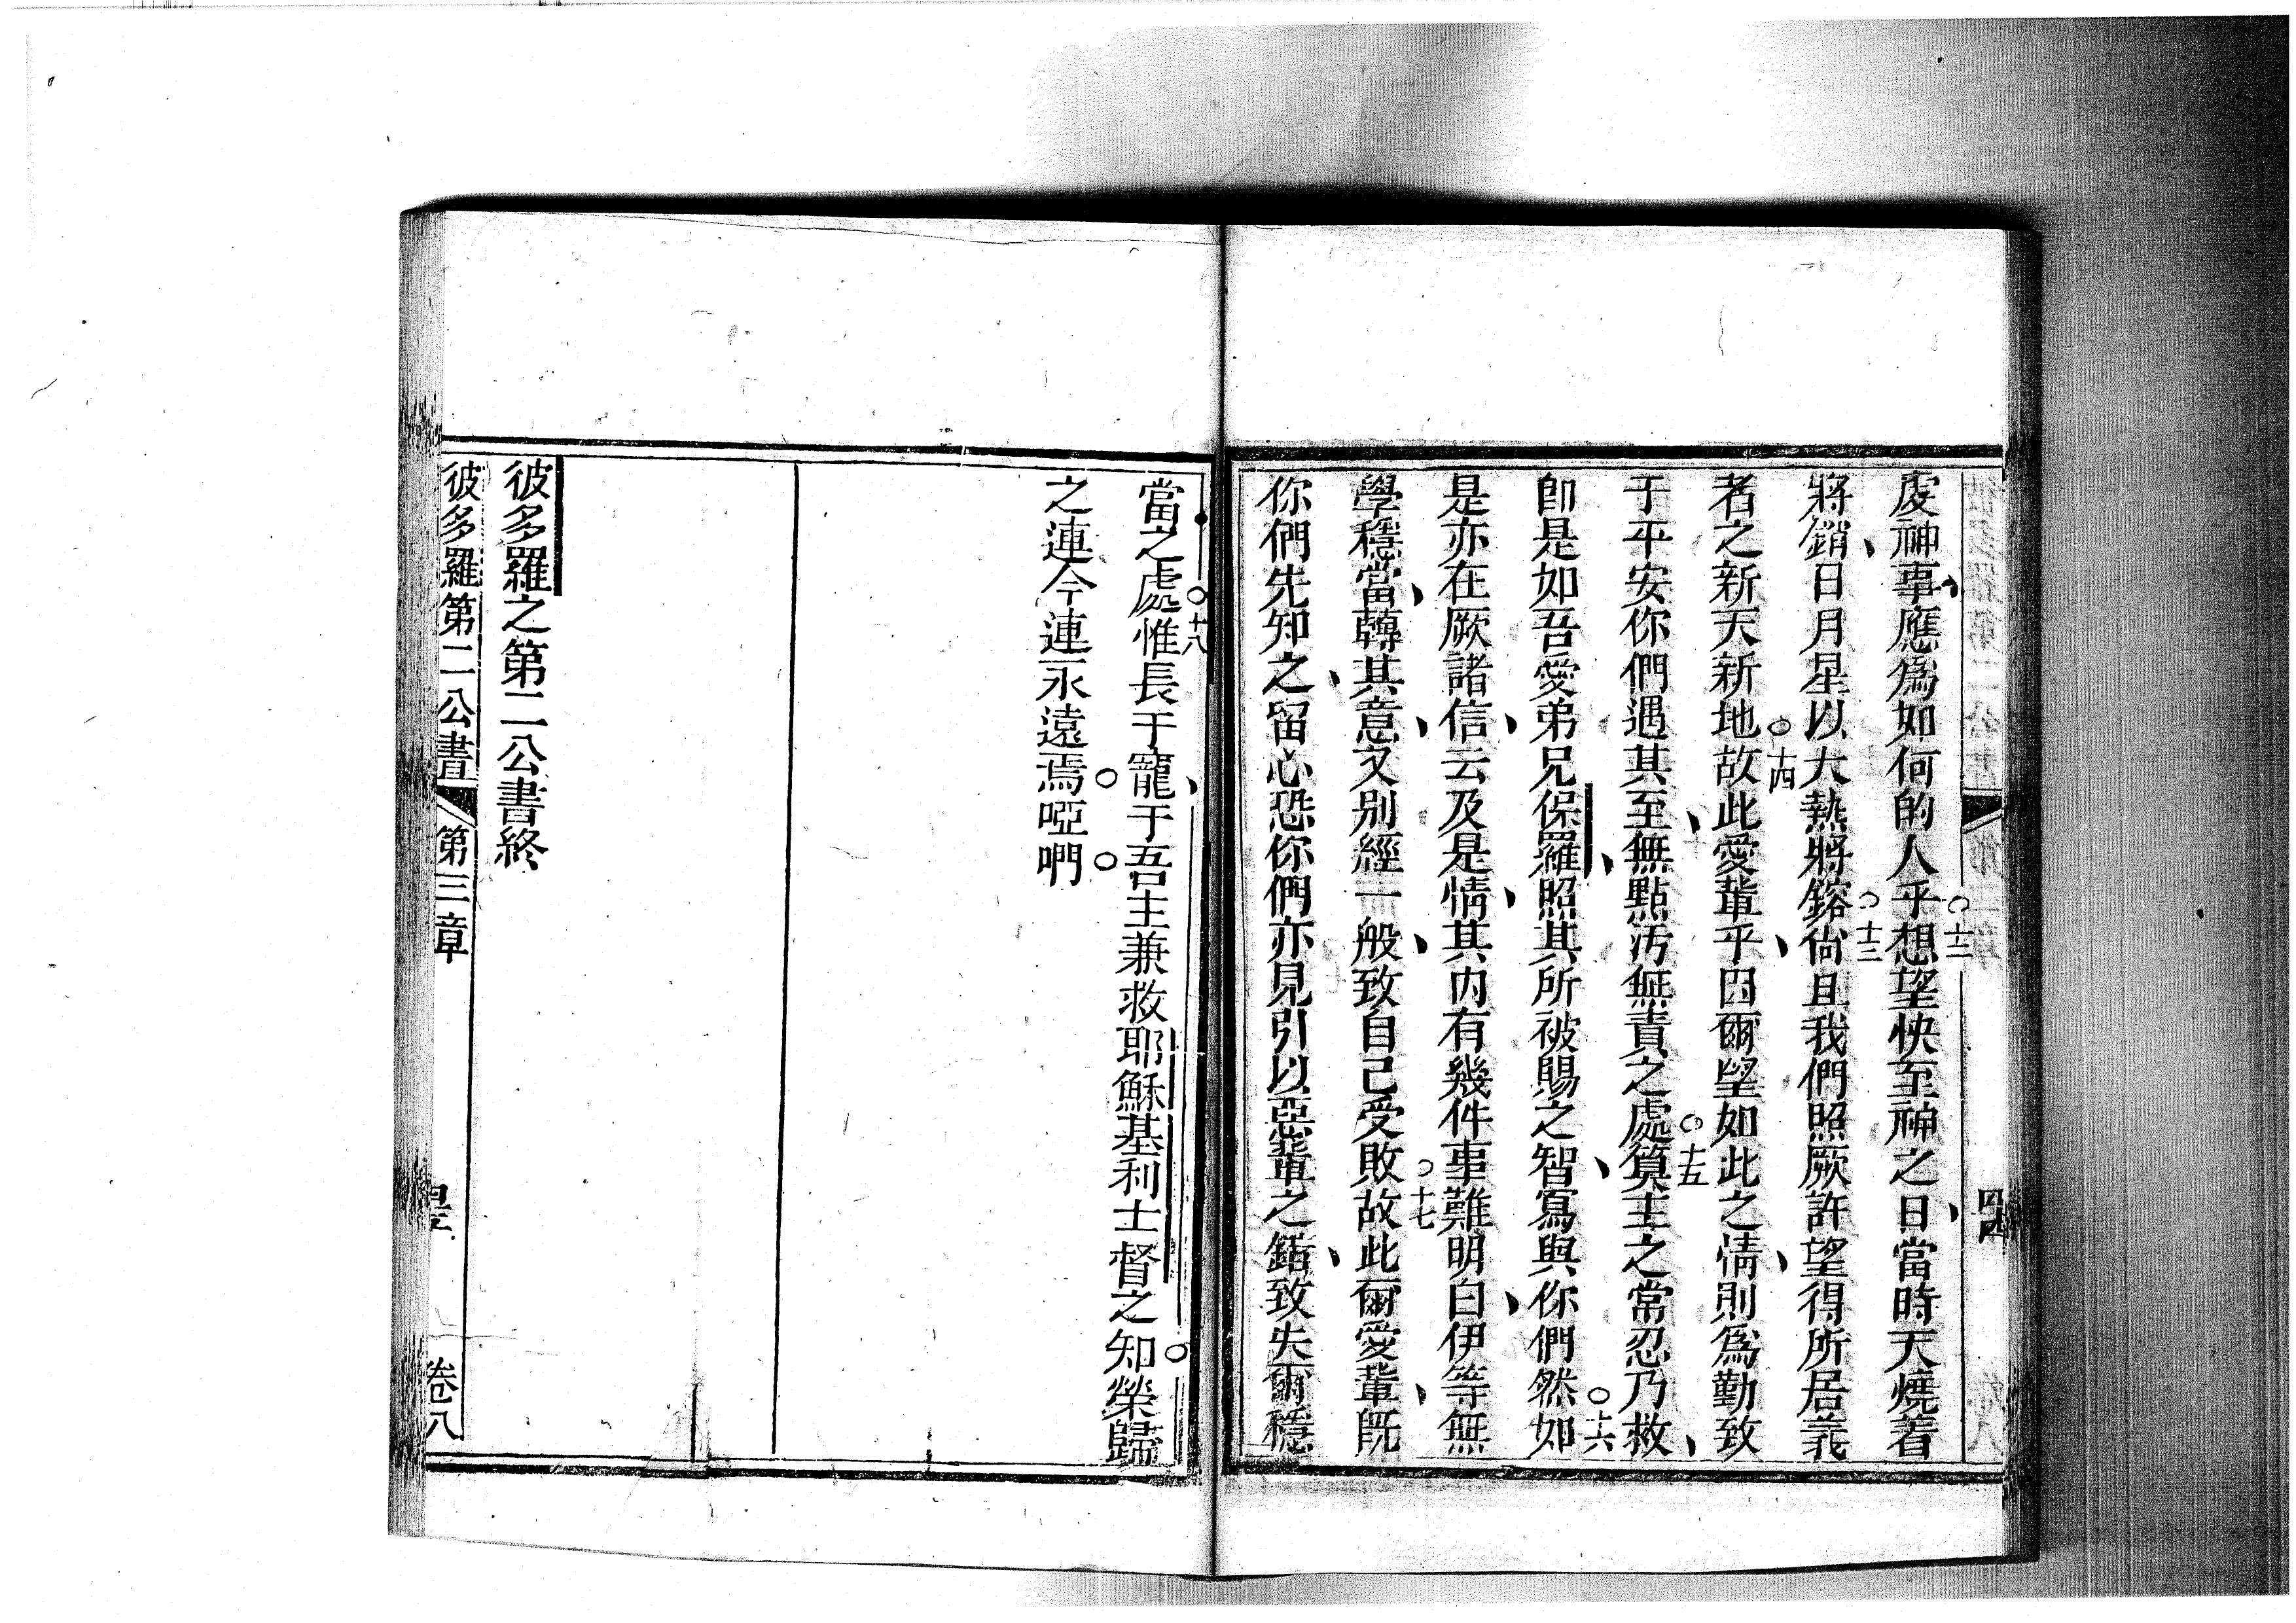 虔神事、應爲如何的人乎○十二想望快至神之日、當時天燒着
將銷、日月星以大熱將鎔○十三尙且我們照厥許望得所居義
者之新天新地○十四故此愛輩乎、因爾望如此之情、則爲勤致
于平安你們遇其至、無點汚無責之處○十五算主之常忍乃救、
卽是如吾愛弟兄保羅、照其所被賜之智、寫與你們然○十六如
是亦在厥諸信、云及是情、其內有幾件事難明白、伊等無
學穩當、轉其意、又別經一般、致自己受敗○十七故此爾愛輩、旣
你們先知之、留心恐你們亦見引以惡輩之錯、致失爾穩
當之處○十八惟長于寵、于吾主兼救耶穌基利士督之知○榮歸
之連今連永遠焉○啞嗎○
彼多羅之第二公書終
彼多羅第二公書 第三章 卷八